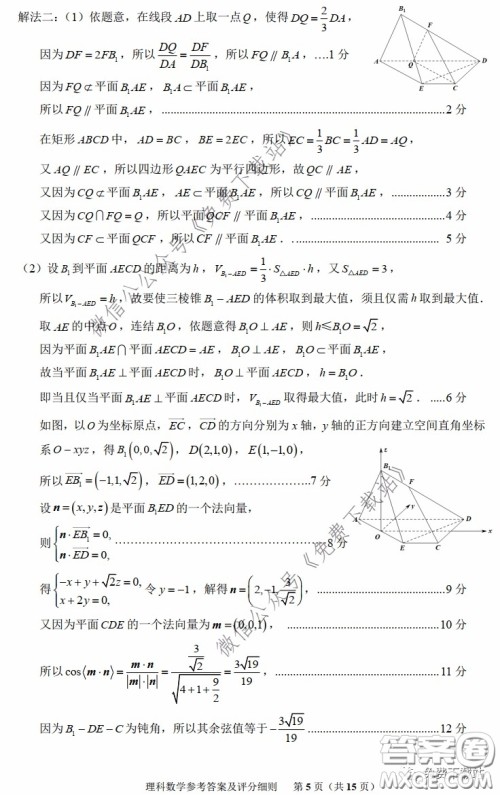 解法二：（1）依题意，在线段 AD 上取一点 Q，使得 DQ=2/3 DA，
因为 DF=2FB₁，所以 DQ/DA=DF/DB₁，所以 FQ∥B₁A，….1 分
因为 FQ⊄平面 B₁AE，B₁A⊂平面 B₁AE，
所以 FQ∥平面 B₁AE，……2 分
在矩形 ABCD 中，AD=BC，BE=2EC，所以 EC=1/3 BC=1/3 AD=AQ，
又 AQ∥EC，所以四边形 QAEC 为平行四边形，故 QC∥AE，
又因为 CQ⊄平面 B₁AE，AE⊂平面 B₁AE，所以 CQ∥平面 B₁AE，……3 分
又因为 CQ∩FQ=Q，所以平面 QCF∥平面 B₁AE，……4 分
又因为 CF⊂平面 QCF，所以 CF∥平面 B₁AE．……5 分
（2）设 B₁ 到平面 AECD 的距离为 h，V_{B₁-AED}=1/3·S_{△AED}·h，又 S_{△AED}=3，
所以 V_{B₁-AED}=h，故要使三棱锥 B₁-AED 的体积取到最大值，须且仅需 h 取到最大值．
取 AE 的中点 O，连结 B₁O，依题意得 B₁O⊥AE，则 h≤B₁O=√2，
因为平面 B₁AE∩平面 AECD=AE，B₁O⊥AE，B₁O⊂平面 B₁AE，
故当平面 B₁AE⊥平面 AECD 时，B₁O⊥平面 AECD，h=B₁O．
即当且仅当平面 B₁AE⊥平面 AECD 时，V_{B₁-AED} 取得最大值，此时 h=√2．……6 分
如图，以 O 为坐标原点，EC，CD 的方向分别为 x 轴，y 轴的正方向建立空间直角坐标
系 O-xyz，得 B₁(0,0,√2)，D(2,1,0)，E(1,-1,0)，
所以 EB₁=(-1,1,√2)，ED=(1,2,0)，……7 分
设 n=(x,y,z) 是平面 B₁ED 的一个法向量，
则 {n·EB₁=0, n·ED=0, ……8 分
得 {-x+y+√2z=0, x+2y=0, 令 y=-1，解得 n=(2,-1,3/√2)，……9 分
又因为平面 CDE 的一个法向量为 m=(0,0,1)，……10 分
所以 cos⟨m·n⟩=m·n/(|m|·|n|)=(3/√2)/√(4+1+9/2)=3√19/19，……11 分
因为 B₁-DE-C 为钝角，所以其余弦值等于 -3√19/19 ……12 分
理科数学参考答案及评分细则 第 5 页（共 15 页）
微信公众号《免费下载站》
微信公众号《免费下载站》
答案圈